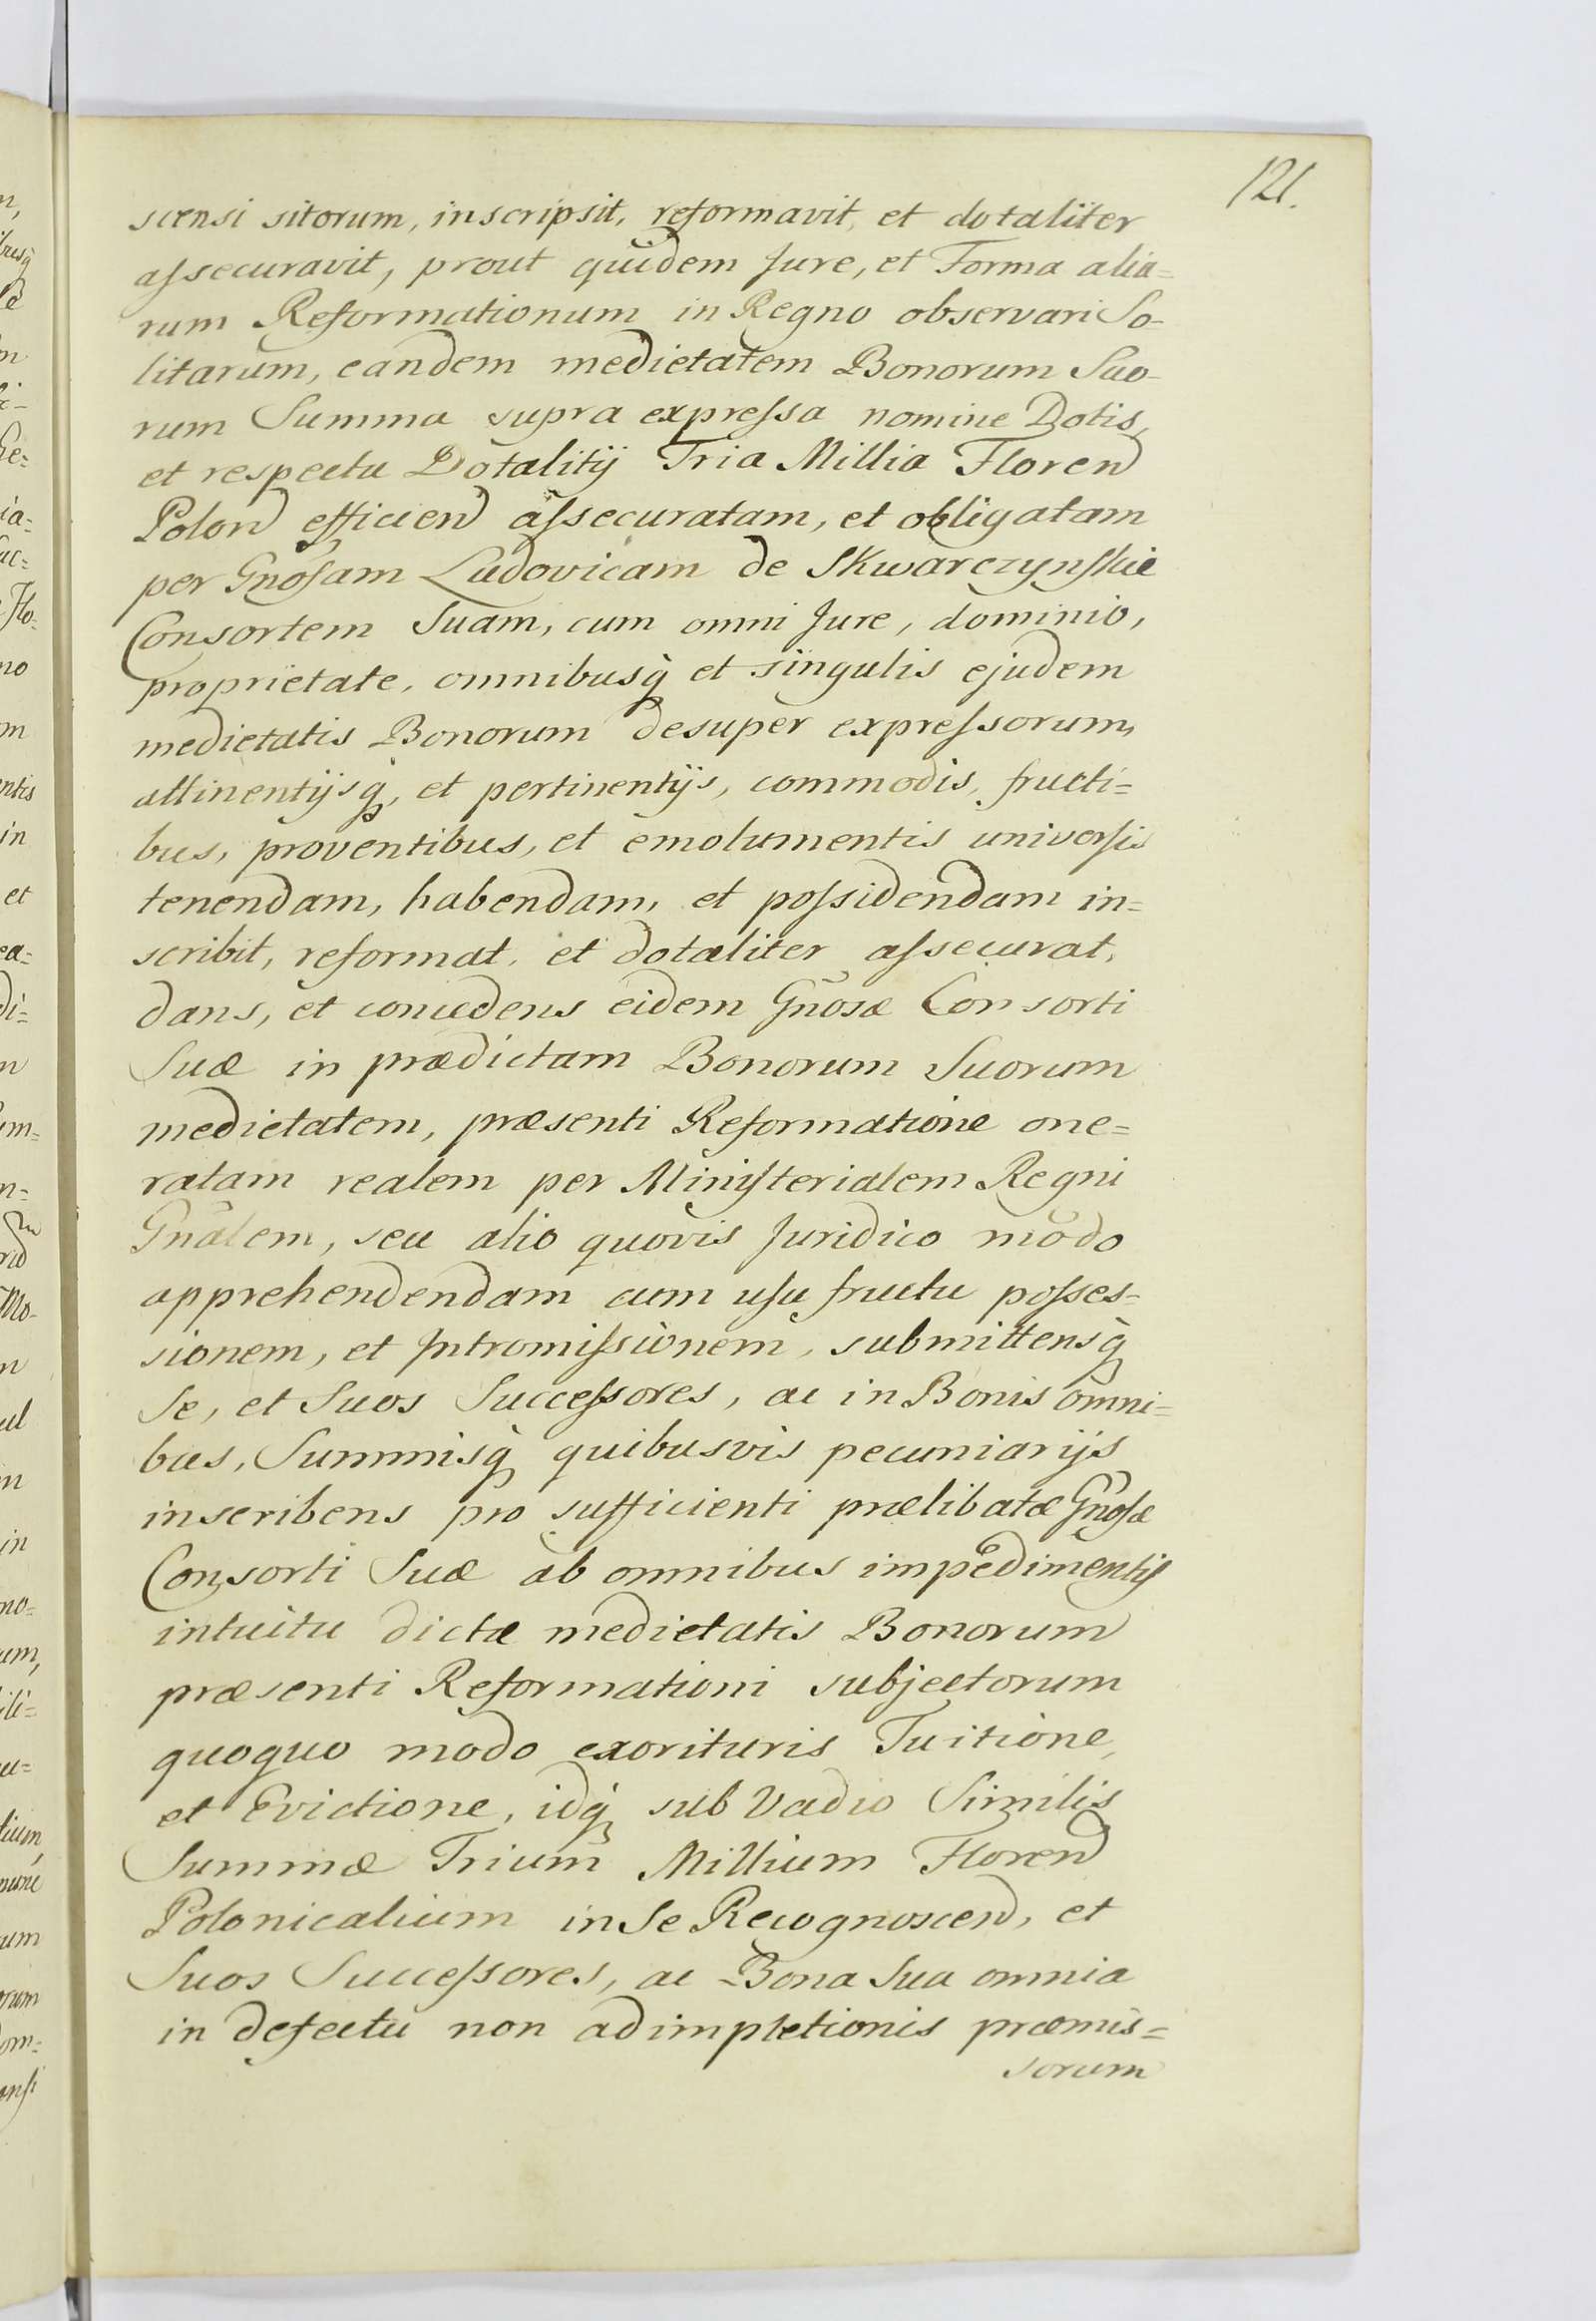 121.
scensi sitorum, inscripsit, reformavit, et dotaliter
aſsecuravit, prout quidem Jure, et Forma alia=
rum Reformationum in Regno observari So-
litarum, eandem medietatem Bonorum Suo-
rum Summa supra expreſsa nomine Dotis,
et respectu Dotalitÿ Tria Millia Floren
Polon efficien aſsecuratam, et obligatam
per Gnoſam Ludovicam de Skwarczynſkie
Consortem Suam, cum omni Jure, dominio,
proprietate, omnibusq̀ et singulis ejudem
medietatis Bonorum desuper expreſsorum,
attinentijsq̀, et pertinentijs, commodis, fructi=
bus, proventibus, et emolumentis univerſis
tenendam, habendam, et poſsidendam in=
scribit, reformat, et dotaliter aſsecurat,
dans, et concedens eidem Gnosæ Consorti
Suæ in prædictam Bonorum Suorum
medietatem, præsenti Reformatione one=
ratam realem per Miniſterialem Regni
Gnalem, seu alio quovis Juridico modo
apprehendendam cum uſu fructu poſses=
sionem, et Intromiſsionem, submittensq̀
Se, et Suos Succeſsores, ac in Bonis omni=
bus, Summisq̀ quibusvis pecuniarijs
inscribens pro sufficienti prælibatæ Gnoſæ
Consorti Suæ ab omnibus impedimentis
intuitu dictæ medietatis Bonorum
præsenti Reformationi subjectorum
quoquo modo exorituris Tuitione,
et Evictione, idq̀ sub Vadio Similis
Summæ Trium Millium Floren
Polonicalium in Se Recognoscen, et
Suos Succeſsores, ac Bona Sua omnia
in defectu non adimpletionis præmis=
sorum